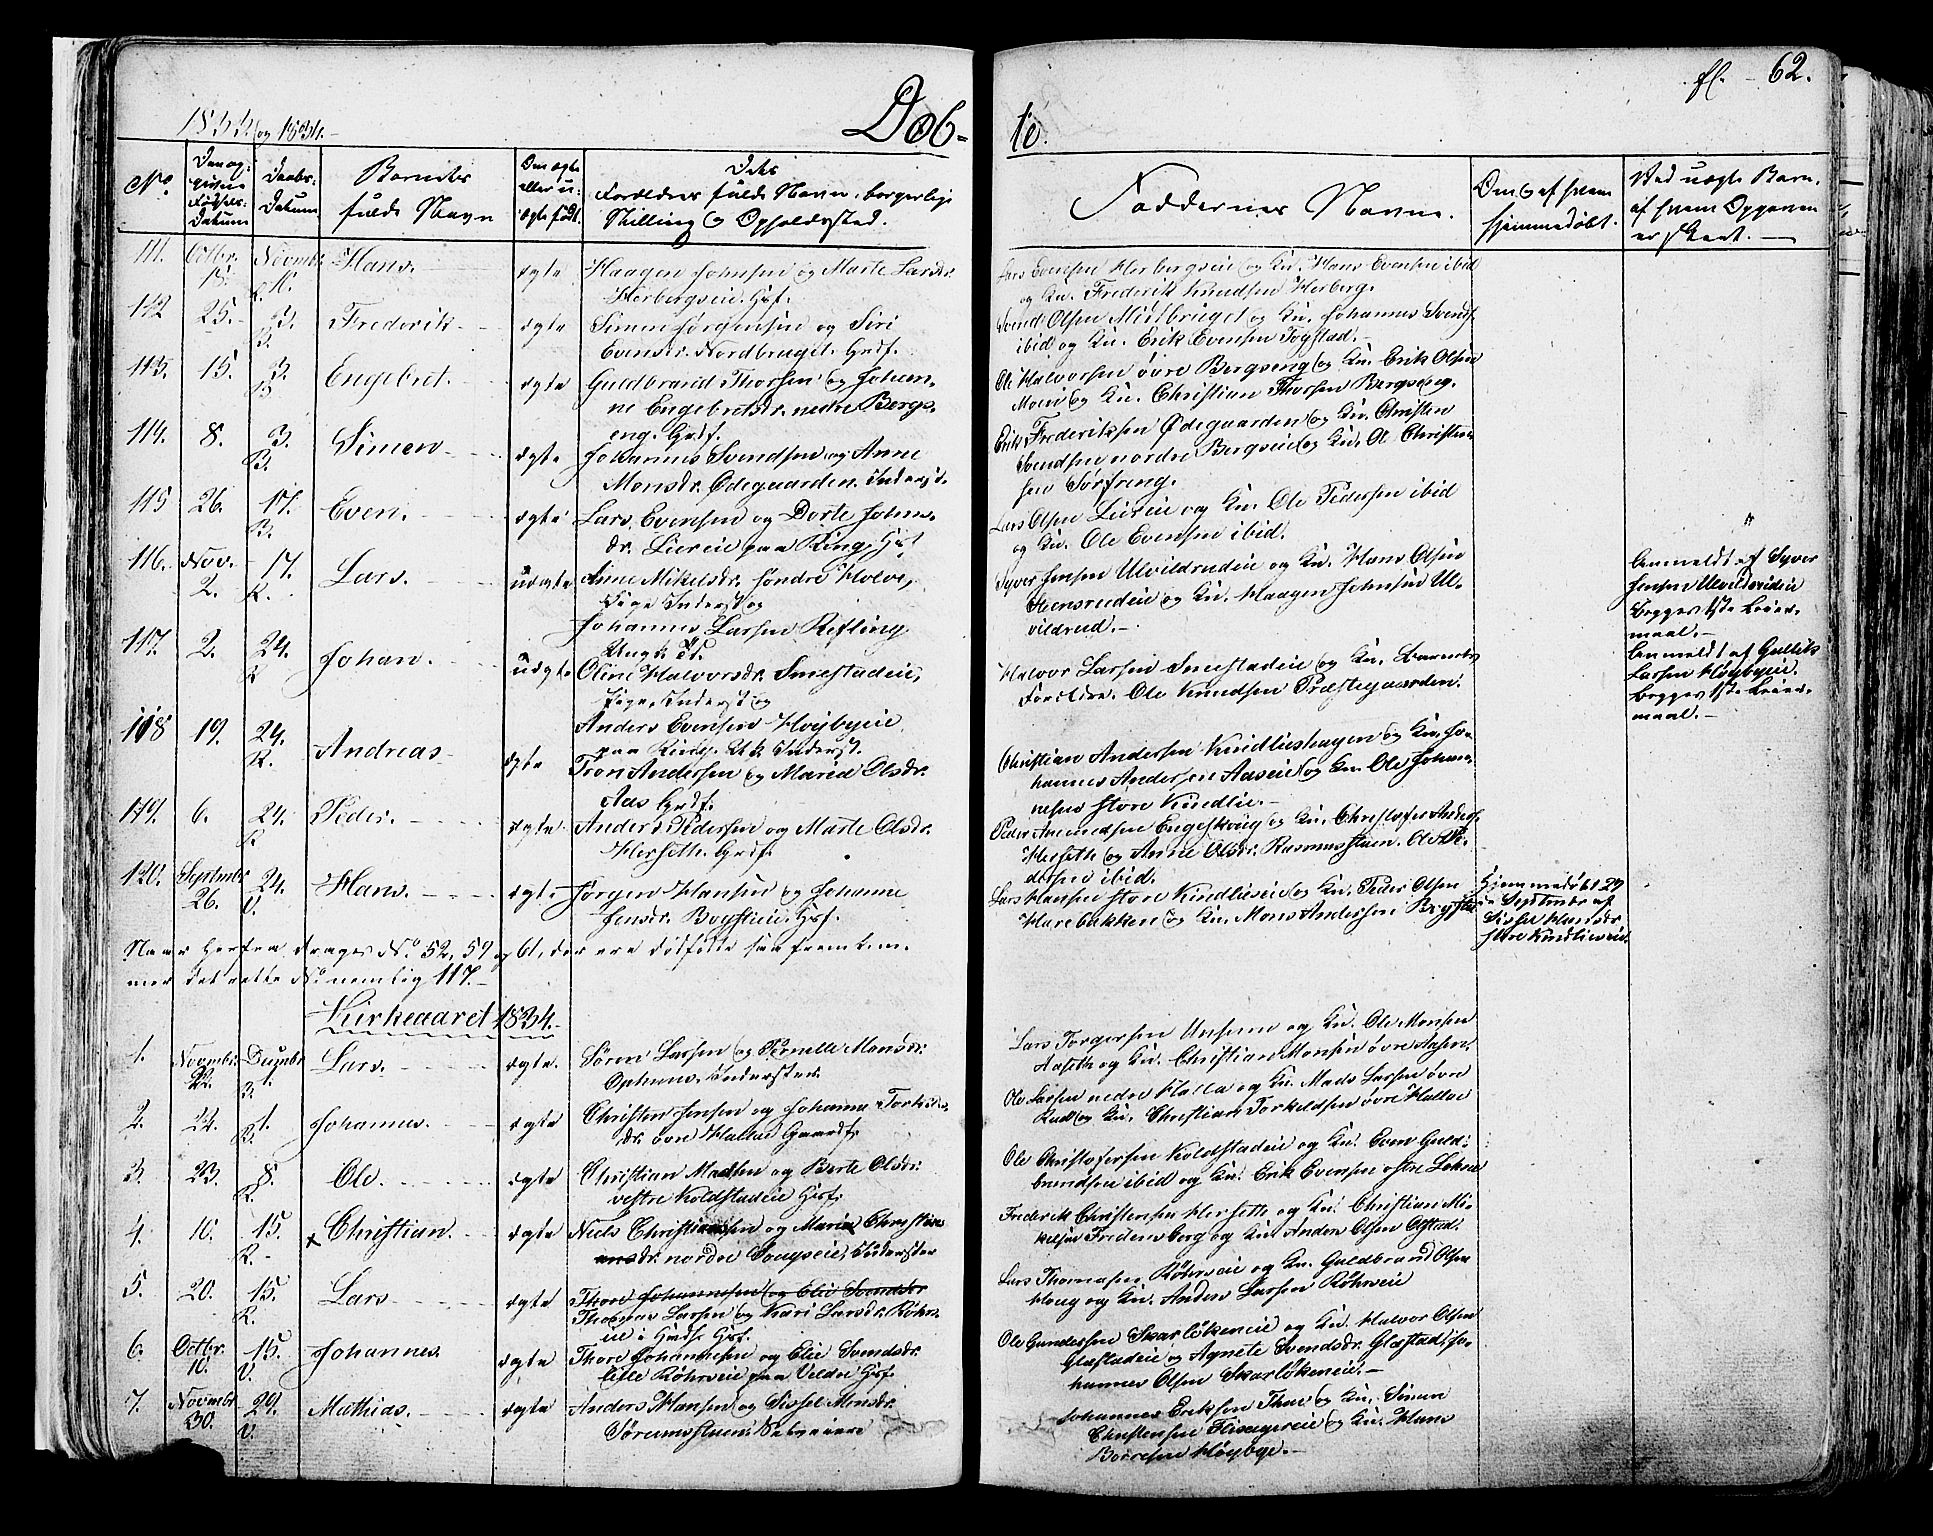 fl. 62.
1833 og 1834.
Døb-
te.
No.
Den op-
givne
Fødsels-
Datum
Daabs-
Datum
Barnets
fulde Navn
Om ægte
eller u-
ægte født.
Dets
Forældres fulde Navn, borgerlige
Stilling og Opholdssted.
Faddernes Navne.
Om og af hvem
hjemmedøbt.
Ved uægte Børn,
af hvem Opgaven
er skeet.
111. Octbr. 18. Novmbr. Hans. ægte Haagen Johnsen og Marte Larsdr.
Herbergseie. Husf.
Lars Evensen Herbergseie og Km. Hans Evensen ibid
og Km. Frederik Knudsen Herberg.
112 25. 3. Frederik ægte Simen Jørgensen og Siri
Evensdr. Nordbraget. Grdf.
Svend Olsen Midtbruget og Km. Johannes Svends.
ibid og Km. Erik Evensen Fogstad.
113. 15. 3. Engebret. ægte Guldbrand Thorsen og Johan-
ne Engebretsdr. nedre Bergs-
eng. Grdf.
Ole Halvorsen øvre Bergseng og Km. Erik Olsen
Moen og Km. Christian Thorsen Bergseng.
114. 8. 3. B. Simen ægte Johannes Svendsen og Anne
Monsdr. Ødegaarden. Inderst.
Erik Frederiksen Ødegaarden og Km. Christen
Svendsen nordre Bergseie og Km. Ole Christian-
sen Sørfneng.
115 26. 17. B. Even. ægte Lars Evensen og Dorte Johns-
dr. Liereie paa Ring, Husf.
Lars Olsen Liereie og Km. Ole Pedersen ibid
og Km. Ole Evensen ibid.
116. Nov. 2. 17. R. Lars. uægte Anne Mikelsdr. søndre Halve,
Pige Inderst og
Johannes Larsen Refling
Ungk.
Syver Jensen Ulvildrudeie og Km. Hans Olsen
Steensrudeie og Km. Haagen Johnsen Ul-
vildrud.
Anmeldt af Syver
Jensen Ulvildrudeie
Begges 1ste Leier-
maal.
117. 2. 24. Johan. uægte Oline Halvorsdr. Smestadeie,
Pige, Inderst og
Anders Evensen Høybyeie
paa Ring. Uk. Inderst.
Halvor Larsen Smestadeie og Km. Barnets
Forældre. Ole Knudsen Præstegaarden.
Anmeldt af Gullik
Larsen Høybyeie.
Begges 1ste Leier-
maal.
118 19. 24. R. Andreas ægte Tron Andersen og Maria Olsdr.
Aas Grdf.
Christian Andersen Kindlieshagen og Km. Jo-
hannes Andersen Aaseie og Km. Ole Johan-
nesen store Kindlie.
119. 6. 24. Peder. ægte. Anders Pedersen og Marte Olsdr.
Herseth. Grdf.
Peder Amundsen Engeskoug og Km. Christofer Anders.
Herseth og Anne Olsdr. Rasmusstuen. Ole Pe-
dersen ibid.
120. Septmbr. 26. 24. V. Hans. ægte Jørgen Hansen og Johanne
Jensdr. Bøgstieie. Husf.
Lars Hansen store Kindlieeie og Km. Peder Olsen
Harebakken og Km. Mons Andersen
Hjemmedøbt 29
Septmbr. af
Sissel Hansdr.
store Kindlieeie.
Naar herfra drages No. 52, 59 og 61, der ere dødfødte saa fremkom-
mer det rette No. nemlig 117.
Kirkeaaret 1834.
1. Novmbr. 22. Decmbr. 1. Lars. ægte. Søren Larsen og Pernelle Monsdr.
Ophuus. Inderster.
Lars Torgersen Unsum og Km. Ole Monsen
Aaseth og Km. Christian Monsen øvre Aasen.
2. 22. 1. R. Johannes. ægte Christen Jensen og Johanne Torkels-
dr. øvre Halvei Gaardf.
Ole Larsen nedre Halla og Km. Mads Larsen øvre
Rud og Km. Christian Torkeldsen øvre Halvei
3. 23. 8. R. Ole. ægte Christian Madsen og Berte Olsdr.
vestre Koldstadeie Husf.
Ole Christofersen Koldstadeie og Km. Even Guld-
brandsen ibid og Km. Erik Evensen østre Lohne
4. 10. 15. R. x Christian. ægte Niels Christiansen og Maria Christi-
ansdr. nordre Sougseie, Inderster
Frederik Christensen Herseth og Km. Christian Mi-
kelsen Fredensberg og Km. Anders Olsen Ofstad.
5. 20. 15. R. Lars ægte Thore Johannesen og Elie Svendsdr
Thomas Larsen og Kari Larsdr. Røhrs-
eie i Husf.
Lars Thomasen Røhrseie og Km. Guldbrand Olsen
Houg og Km. Anders Larsen Røhrseie
6. Octbr. 10. 15. V. Johannes. ægte Thore Johannesen og Elie Svendsdr.
lille Røhrseie paa Veldre Husf.
Ole Gundersen Skarløkeneie og Km. Halvor Olsen
Glæstadeie og Agnete Svendsdr. Glæstad, Jo-
hannes Olsen Skarløkeneie.
7. Novmbr. 30. 29. V. Mathias. ægte Anders Hansen og Sissel Monsdr.
Sørumsstuen. Selveiere
Johannes Eriksen Thue og Km. Simen
Christensen Flisagereie og Km. Hans
Børresen Høybye.